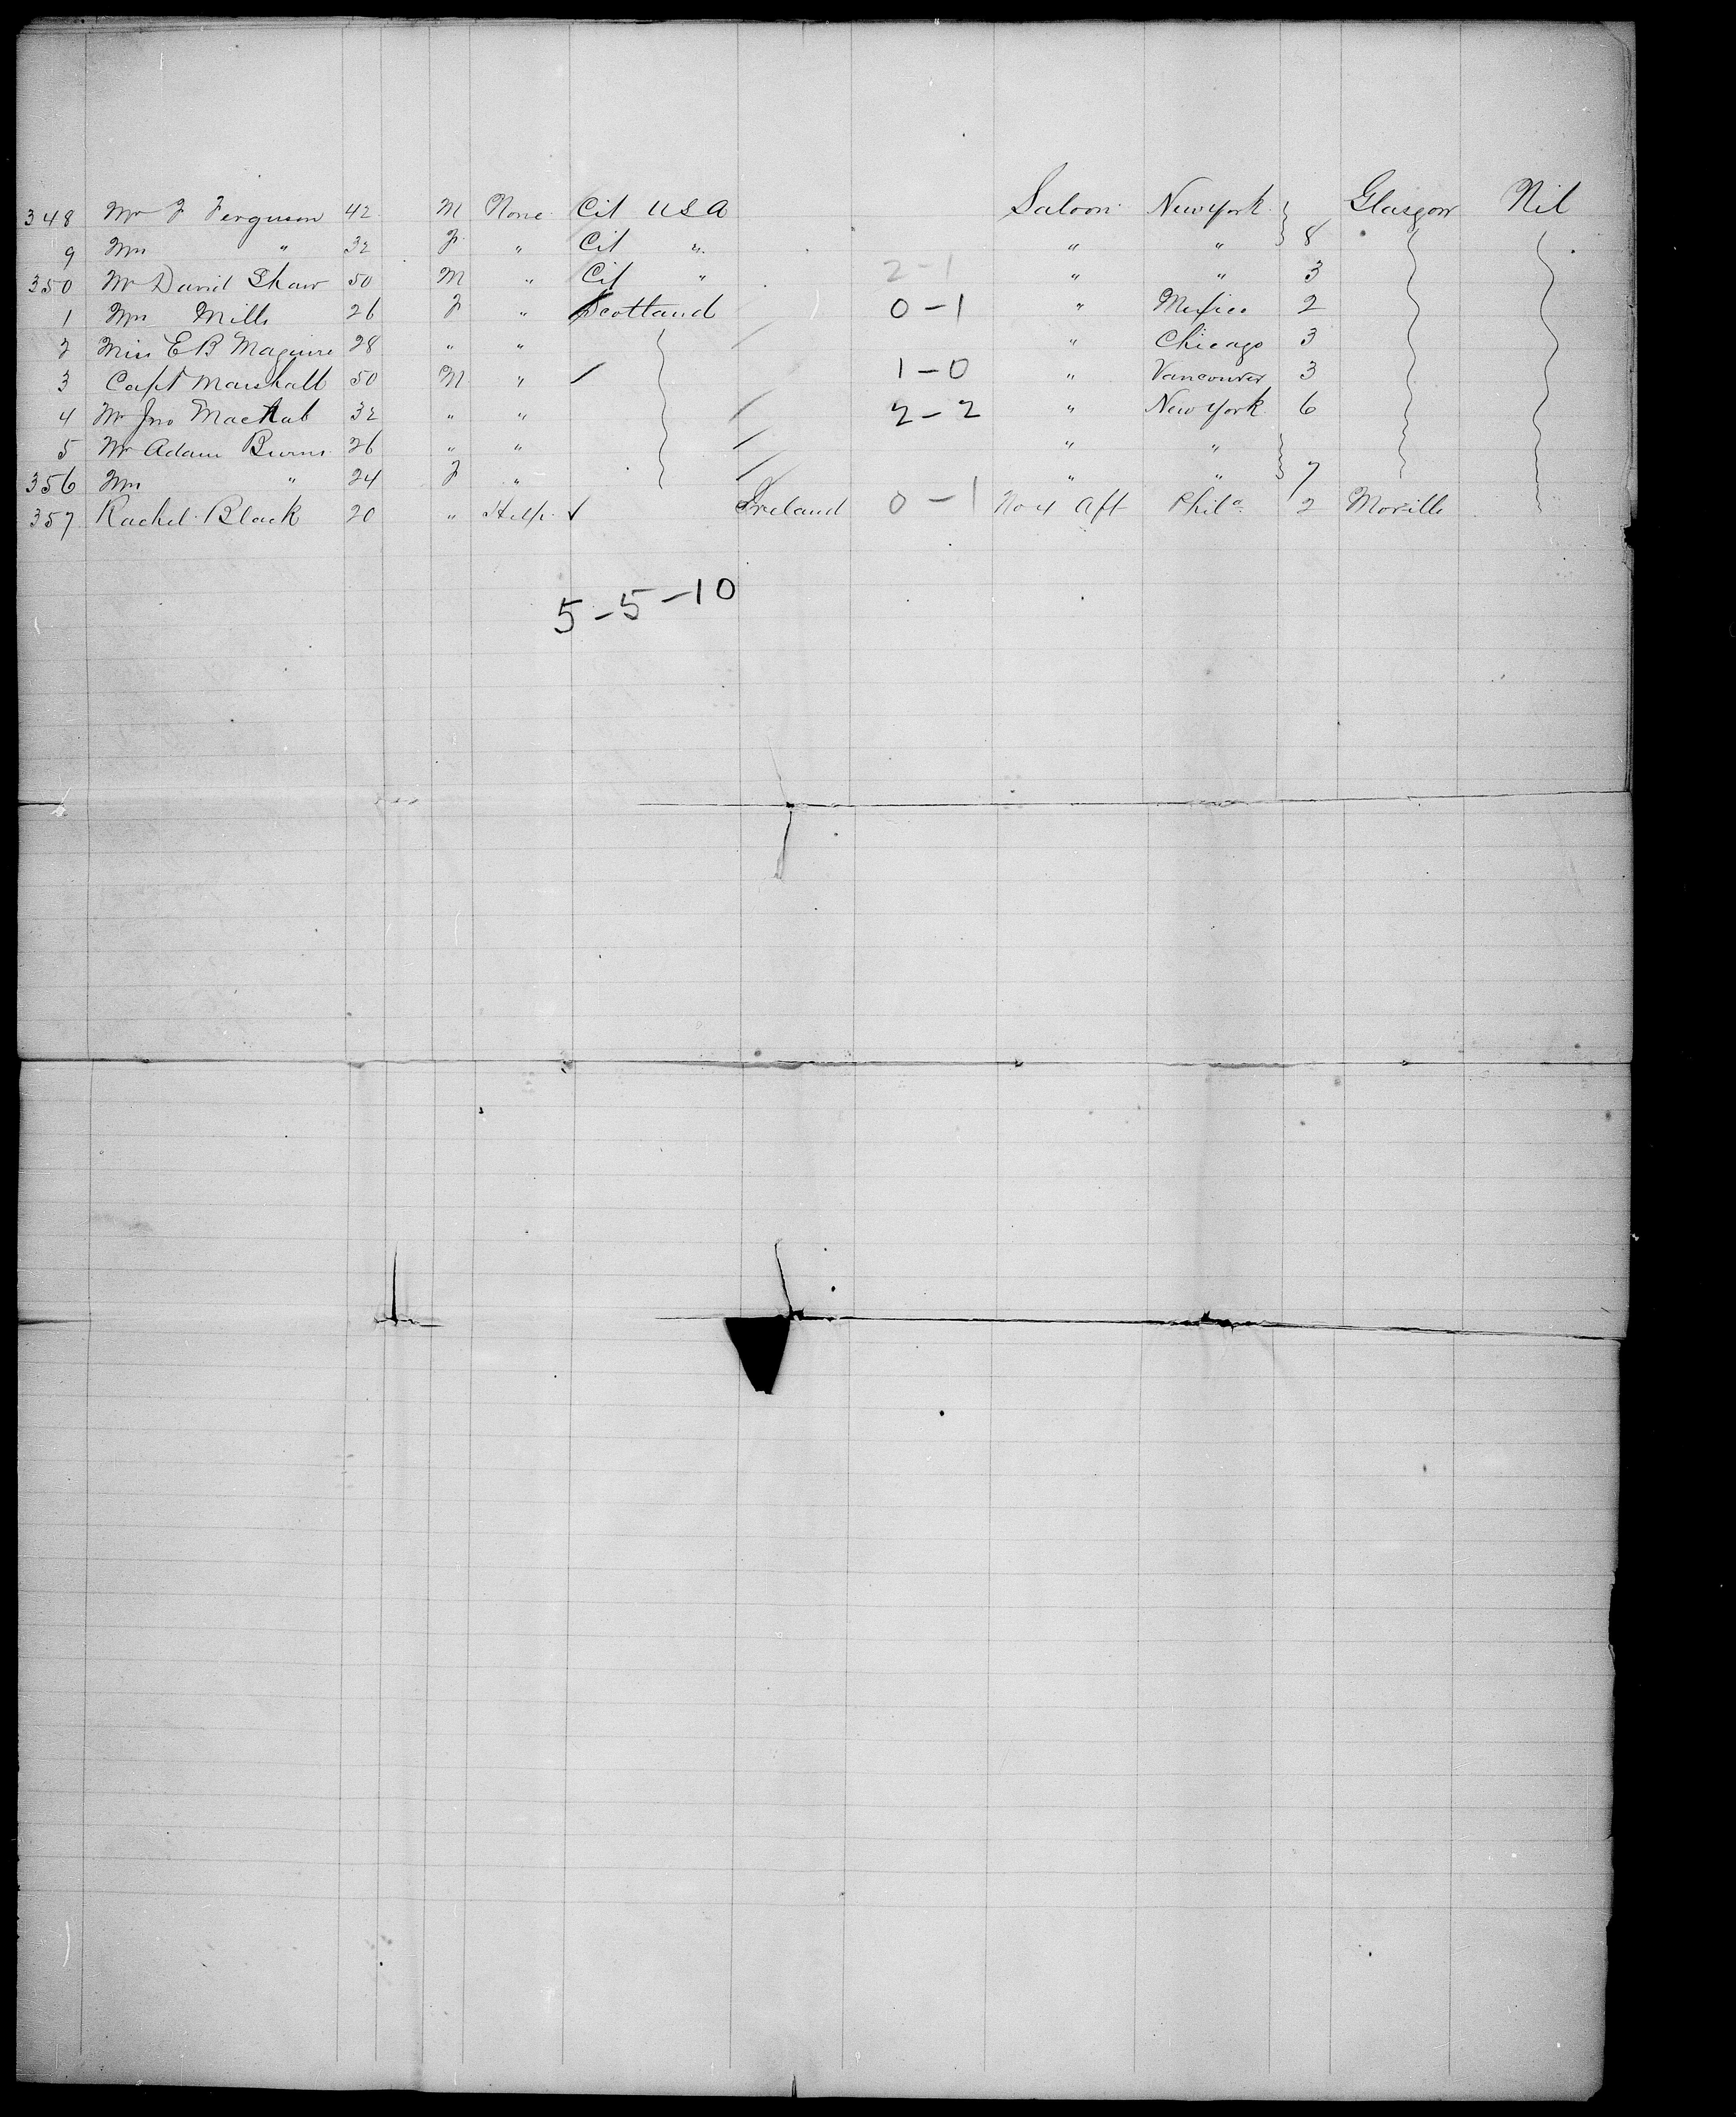 348 Mr J Ferguson 42 M None Cit USA Saloon New York 8 Glasgow Nil
9 Mrs " 32 F " Cit " " "
350 Mr David Shaw 50 M " Cit " 2-1 " " 3
1 Mrs Mills 26 F " Scotland 0-1 " Mexico 2
2 Miss E B Maguire 28 " " " Chicago 3
3 Capt Marshall 50 M " 1-0 " Vancouver 3
4 Mr Jno MacNab 32 " " 2-2 " New York 6
5 Mr Adam Burns 26 " " " "
356 Mrs " 24 F " " " 7
357 Rachel Black 20 " Help Ireland 0-1 No 4 Aft Phila 2 Moville
5-5-10